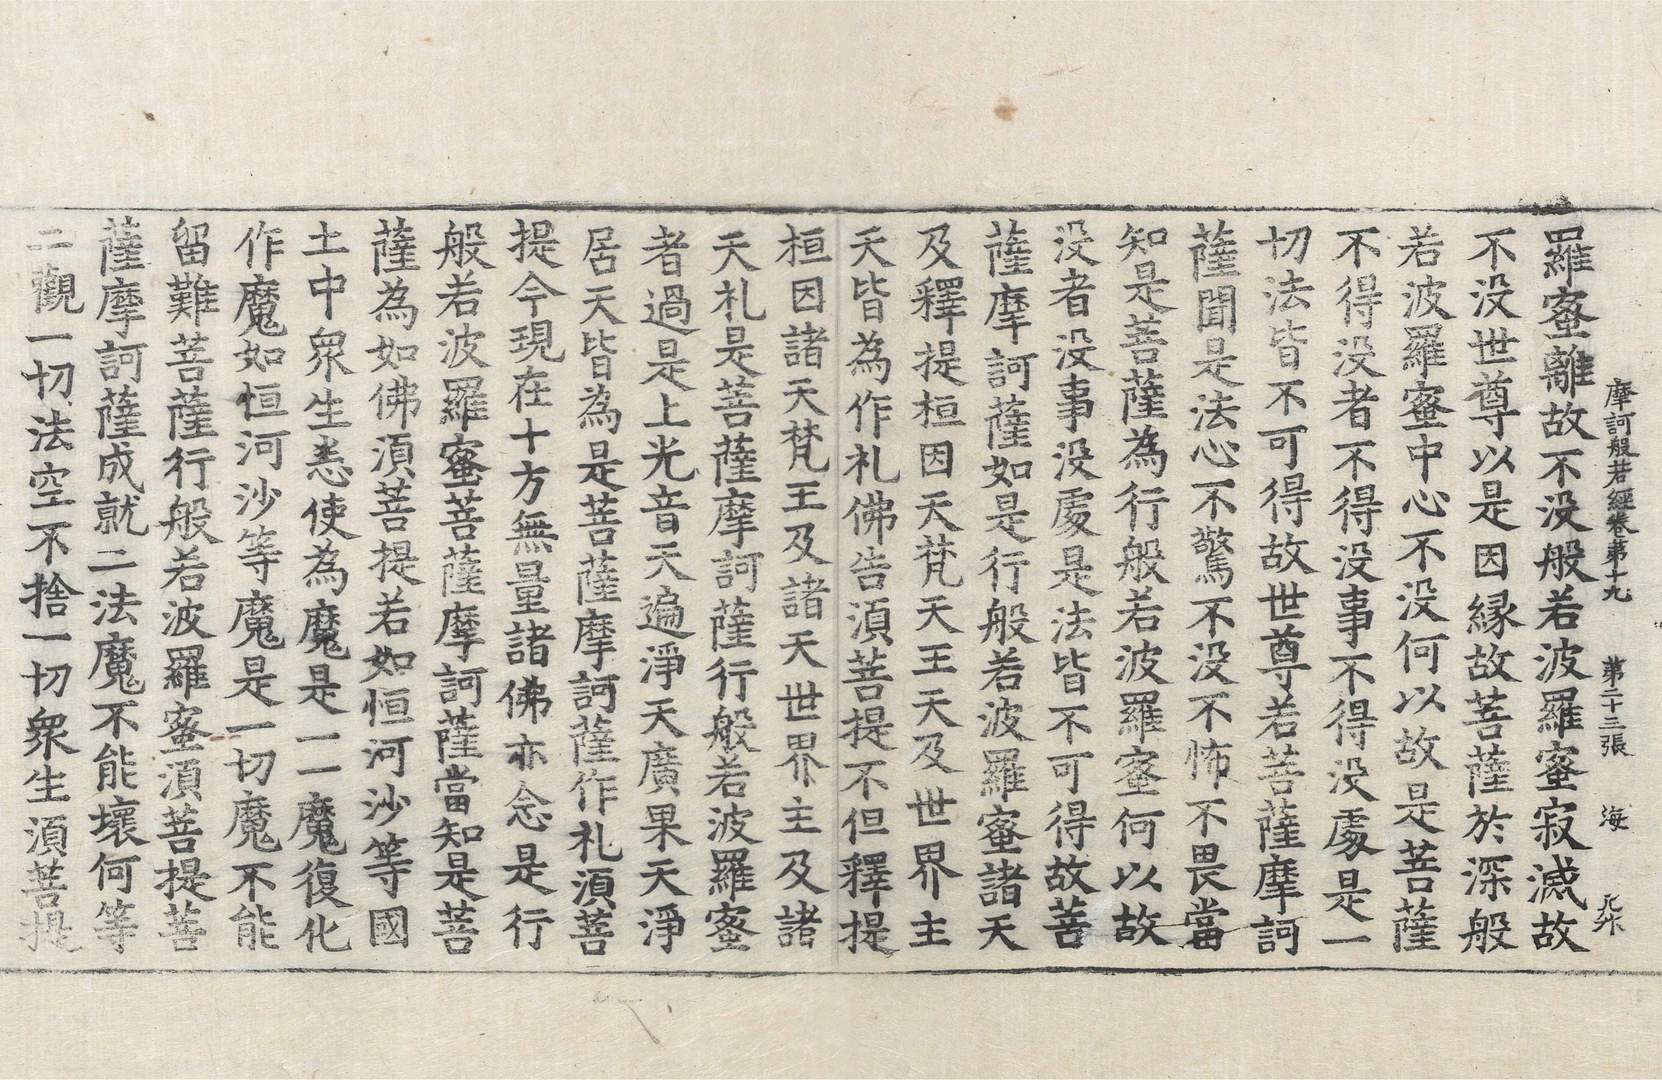 摩訶般若經卷第十九　第二十三張　海
羅蜜離故不没般若波羅蜜寂滅故
不没世尊以是因緣故菩薩於深般
若波羅蜜中心不没何以故是菩薩
不得没者不得没事不得没處是一
切法皆不可得故世尊若菩薩摩訶
薩聞是法心不驚不没不怖不畏當
知是菩薩為行般若波羅蜜何以故
没者没事没處是法皆不可得故菩
薩摩訶薩如是行般若波羅蜜諸天
及釋提桓因天梵天王天及世界主
天皆為作礼佛告須菩提不但釋提
桓因諸天梵王及諸天世界主及諸
天礼是菩薩摩訶薩行般若波羅蜜
者過是上光音天遍淨天廣果天淨
居天皆為是菩薩摩訶薩作礼須菩
提今現在十方無量諸佛亦念是行
般若波羅蜜菩薩摩訶薩當知是菩
薩為如佛須菩提若如恒河沙等國
土中衆生悉使為魔是一一魔復化
作魔如恒河沙等魔是一切魔不能
留難菩薩行般若波羅蜜須菩提菩
薩摩訶薩成就二法魔不能壞何等
二觀一切法空不捨一切衆生須菩提